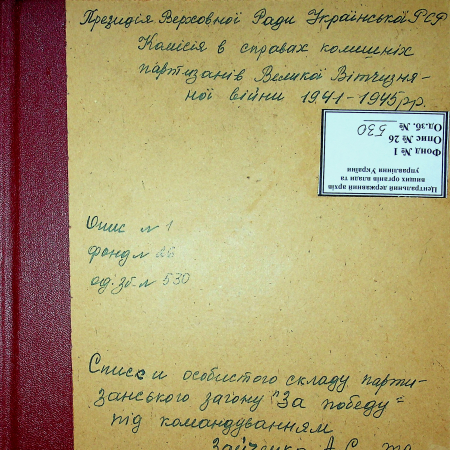 Президія Верховної Ради Української РСР
Комісія в справах колишніх
партизанів Великої Вітчизня-
ної війни 1941-1945 рр.
Центральний державний архів
вищих органів влади та
управління України
Фонд № 1
Опис № 26
Од.зб. № 530
Опис № 1
фонд №
од. зб. № 530
Списки особистого складу парти-
занського загону "За победу"
під командуванням
Зайченка А.С. та